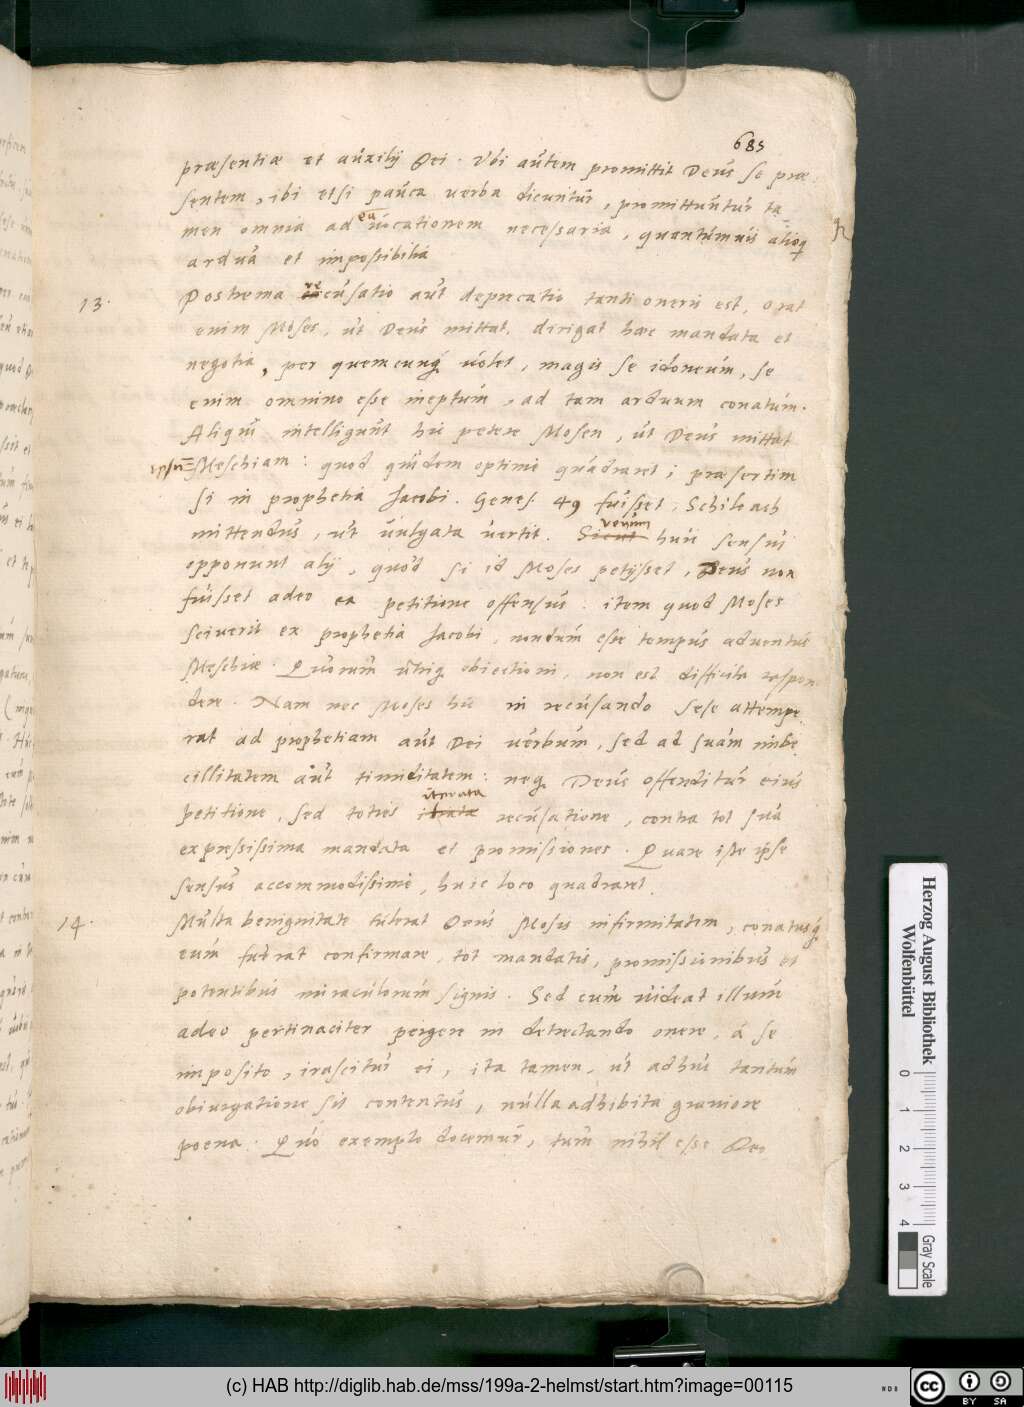 685
præsentiæ et auxilij Dei. Vbi autem promittit Deus se præ
sentem, ibi etsi pauca verba dicuntur, promittuntur ta
men omnia ad ea uocationem necessaria, quantumuis alioq
ardua et impossibilia
13.
Postrema recusatio aut deprecatio tanti oneris est, orat
enim Moses, ut Deus mittat, dirigat hæc mandata et
negotia, per quemcunq uolet, magis se idoneum, se
enim omnino esse ineptum, ad tam arduum conatum.
Aliqui intelligunt hic petere Mosen, ut Deus mittat
ipsum Meschiam: quod quidem optime quadraret, præsertim
si in prophetia Jacobi. Genes. 49 fuisset, Schiloach
mittendus, ut vulgata vertit. Sicut verum huic sensui
opponunt alij, quod si id Moses petijsset, Deus non
fuisset adeo ea petitione offensus: item quod Moses
sciuerit ex prophetia Jacobi, nondum esse tempus aduentus
Meschiæ. Quorum utriq obiectioni, non est difficile respon
dere. Nam nec Moses hic in recusando sese attempe
rat ad prophetiam aut Dei uerbum, sed ad suam imbe
cillitatem aut timiditatem: neq Deus offenditur eius
petitione, sed toties iterata recusatione, contra tot sua
expressissima mandata et promissiones. Quare iste ipse
sensus accommodissime, huic loco quadraret.
14.
Multa benignitate tulerat Deus Mosis infirmitatem, conatusq
eum fuerat confirmare, tot mandatis, promissionibus et
potentibus miraculorum signis. Sed cum uideat illum
adeo pertinaciter pergere in detrectando onere, à se
imposito, irascitur ei, ita tamen, ut adhuc tantum
obiurgatione sit contentus, nulla adhibita grauiore
poena. Quo exemplo docemur, tum nihil esse Deo
Herzog August Bibliothek
Wolfenbüttel
0 1 2 3 4
Gray Scale
(c) HAB http://diglib.hab.de/mss/199a-2-helmst/start.htm?image=00115
WDB
cc BY SA